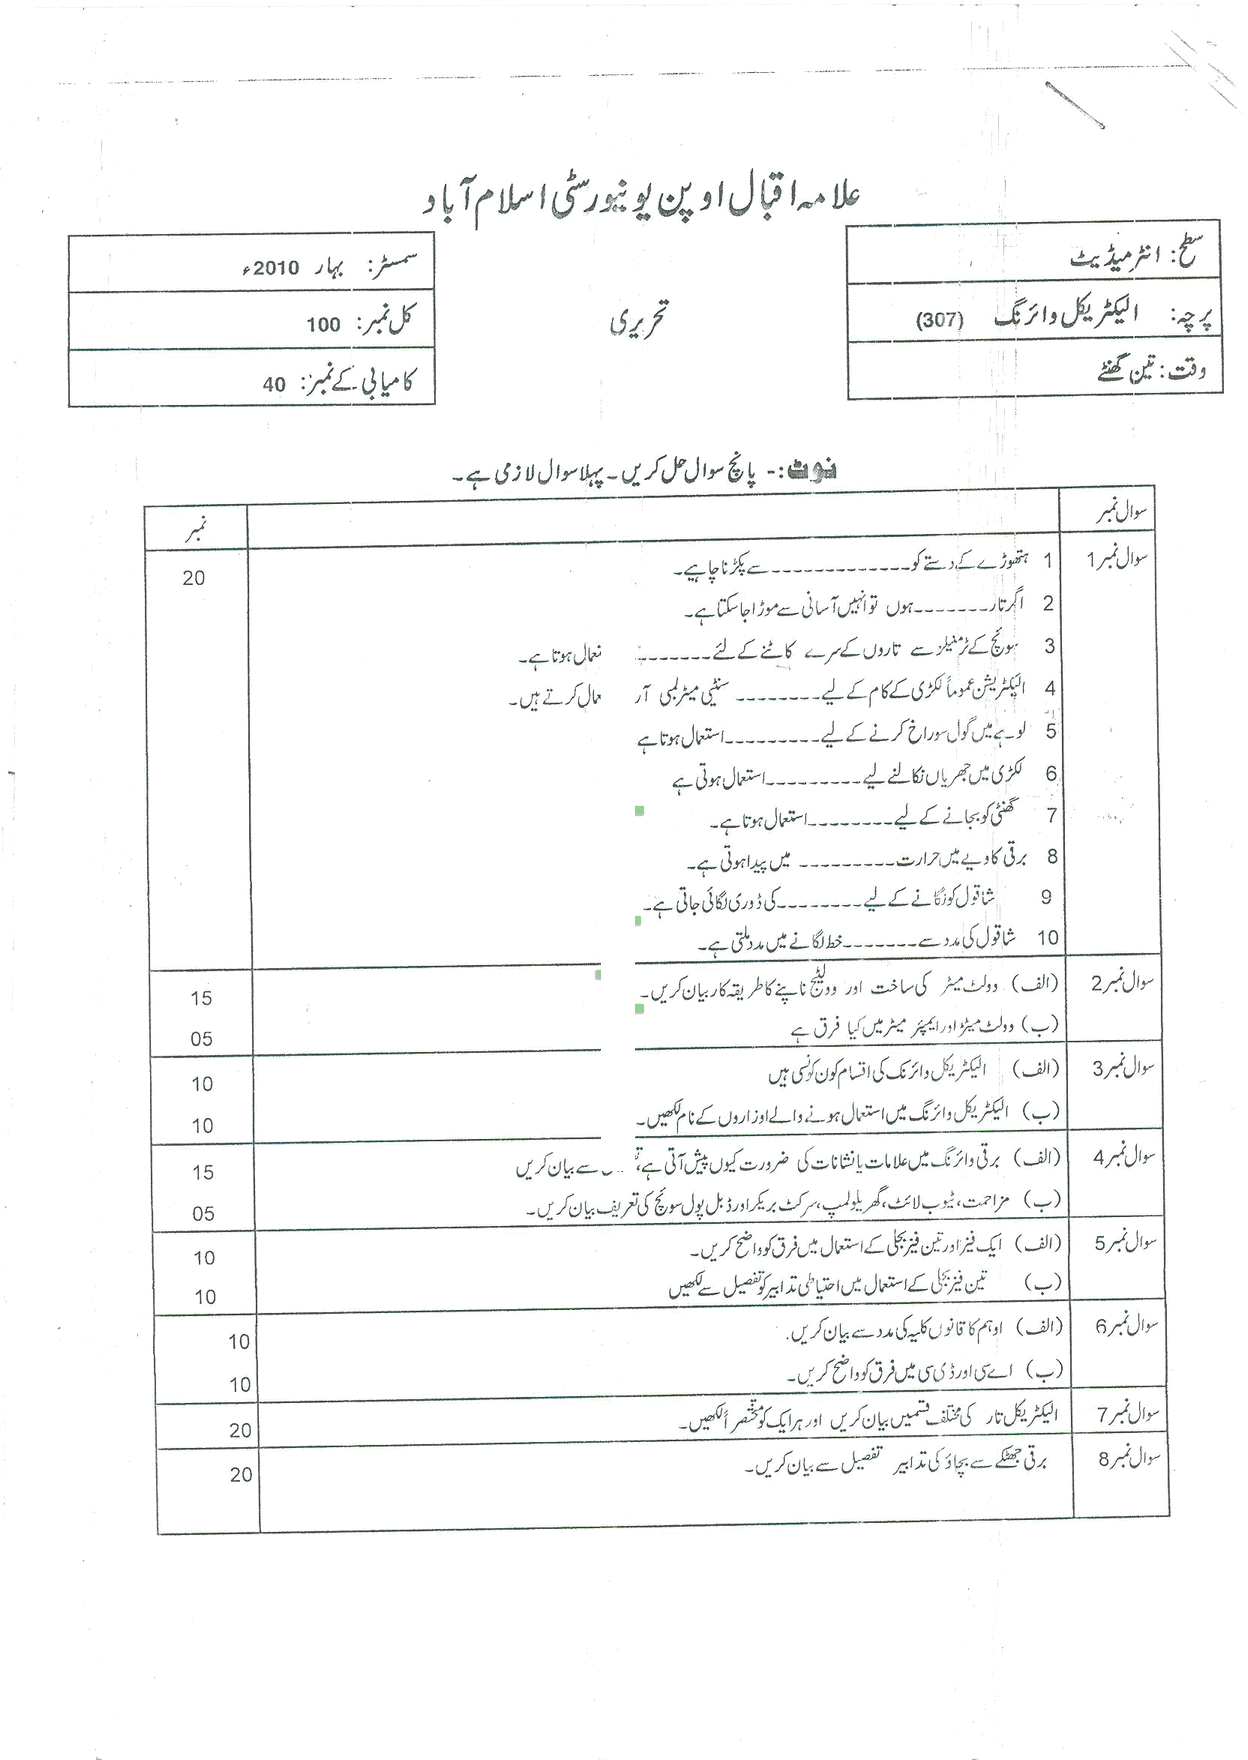 علامہ اقبال اوپن یونیورسٹی اسلام آباد
سطح: انٹرمیڈیٹ
پرچہ: الیکٹریکل وائرنگ (307)
وقت: تین گھنٹے
تحریری
سمسٹر: بہار 2010ء
کل نمبر: 100
کامیابی کے نمبر: 40
نوٹ:- پانچ سوال حل کریں۔ پہلا سوال لازمی ہے۔
سوال نمبر نمبر
سوال نمبر 1 1 ہتھوڑے کے دستے کو ------------- سے پکڑنا چاہیے۔ 20
2 اگر تار ------- ہوں تو انہیں آسانی سے موڑا جاسکتا ہے۔
3 سوئچ کے ٹرمینلز سے تاروں کے سرے کاٹنے کے لئے ------- عمال ہوتا ہے۔
4 الیکٹریشن عموماً لکڑی کے کام کے لیے -------- سنٹی میٹر لمبی آر عمال کرتے ہیں۔
5 لوہے میں گول سوراخ کرنے کے لیے --------- استعمال ہوتا ہے
6 لکڑی میں جھریاں نکالنے لیے --------- استعمال ہوتی ہے
7 گھنٹی کو بجانے کے لیے -------- استعمال ہوتا ہے۔
8 برقی کاویے میں حرارت --------- میں پیدا ہوتی ہے۔
9 شاقول کو لٹکانے کے لیے -------- کی ڈوری لگائی جاتی ہے۔
10 شاقول کی مدد سے ------- خط لگانے میں مدد ملتی ہے۔
سوال نمبر 2 (الف) وولٹ میٹر کی ساخت اور وولٹیج ناپنے کا طریقہ کار بیان کریں۔ 15
(ب) وولٹ میٹر اور ایمپئر میٹر میں کیا فرق ہے 05
سوال نمبر 3 (الف) الیکٹریکل وائرنگ کی اقسام کون کونسی ہیں 10
(ب) الیکٹریکل وائرنگ میں استعمال ہونے والے اوزاروں کے نام لکھیں۔ 10
سوال نمبر 4 (الف) برقی وائرنگ میں علامات یا نشانات کی ضرورت کیوں پیش آتی ہے، سے بیان کریں 15
(ب) مزاحمت، ٹیوب لائٹ، گھریلو لمپ، سرکٹ بریکر اور ڈبل پول سوئچ کی تعریف بیان کریں۔ 05
سوال نمبر 5 (الف) ایک فیز اور تین فیز بجلی کے استعمال میں فرق کو واضح کریں۔ 10
(ب) تین فیز بجلی کے استعمال میں احتیاطی تدابیر کو تفصیل سے لکھیں 10
سوال نمبر 6 (الف) اوہم کا قانون کلیہ کی مدد سے بیان کریں. 10
(ب) اے سی اور ڈی سی میں فرق کو واضح کریں۔ 10
سوال نمبر 7 الیکٹریکل تار کی مختلف قسمیں بیان کریں اور ہر ایک کو مختصراً لکھیں۔ 20
سوال نمبر 8 برقی جھٹکے سے بچاؤ کی تدابیر تفصیل سے بیان کریں۔ 20